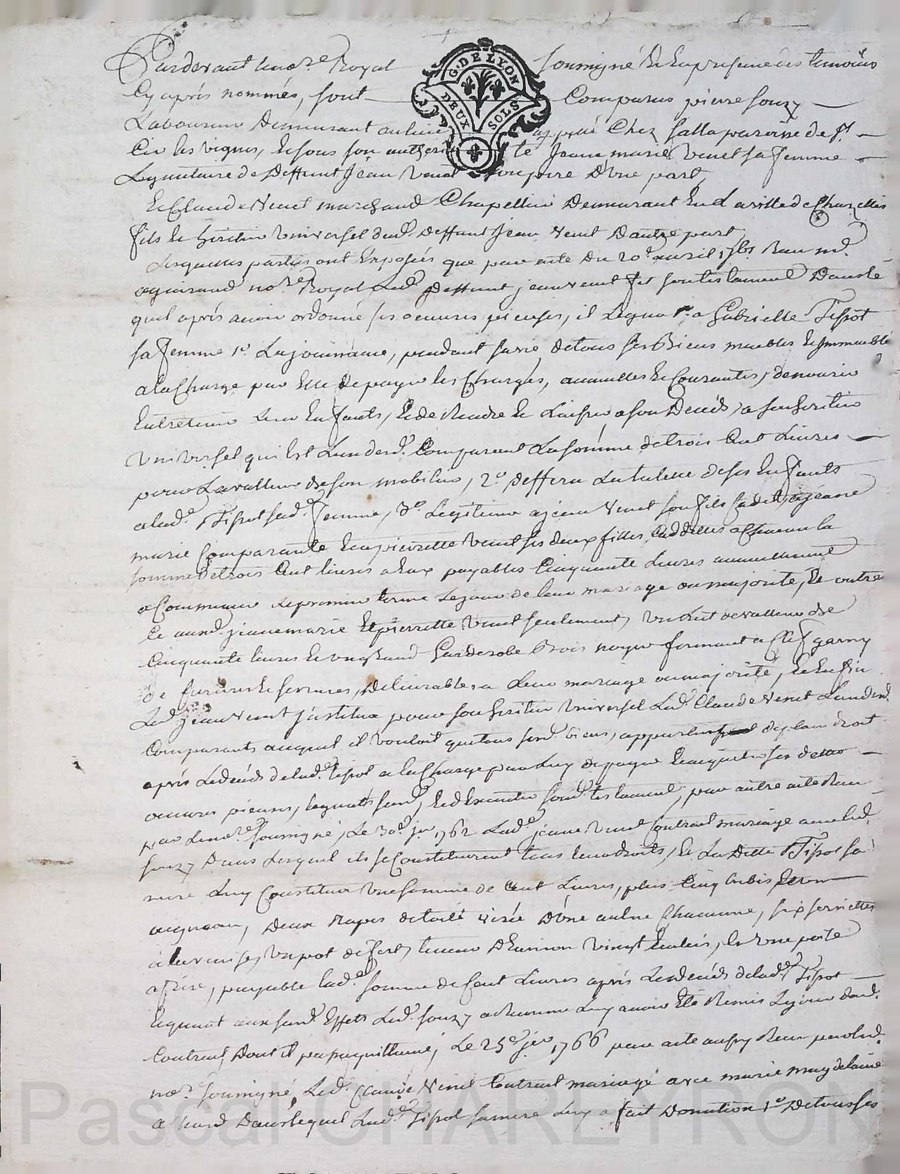 Pardevant le no.re Royal soussigné Et En presence des temoins
Cy après nommés, sont Comparus pierre souzy
G. DE LYON
DEUX SOLS
Laboureur Demeurant au lieu paroisse de S.t
Cir les vignes, Et sous son authorité Jeane marie venet sa femme
Legataire de Deffunt Jean venet son pere D'une part,
Et Claude venet marchand Chapellier Demeurant En la ville de Chazelles
fils Et heritier Universel dud. Deffunt Jean venet D'autre part
Lesquelles parties ont Exposées que par acte du 20.e avril 1761 Receu m.e
no.re Royal Led. Deffunt jean venet fit son testament Dans le
quel après avoir ordonné ses oeuvres pieuses, il Legua a Gabrielle Tissot
sa femme 1.o La jouissance, pendant sa vie de tous ses Biens meubles Et Immeubles
a la Charge par Elle de payer les Charges, annuelles Et Courantes, de nourir
Entretenir Leurs Enfants, Et de Rendre Et Laisser a son Deceds, a son heritier
Universel qui Est L'un des d. Comparant La somme de trois Cent Livres
pour La valleur de son mobilier, 2.o defferra La tutelle de ses Enfants
a lad.e Tissot sad. femme, 3.o Legitima a jean venet son fils Cadet, a jeane
marie Comparante Et a pierrette venet ses deux filles, Cadettes a Chacun la
somme de trois Cent livres a Eux payables Cinquante Livres annuellement
a Commencer Le premier terme Le jour de leur mariage ou majorité, Et outre
Ce aux d. jeane marie Et pierrette venet seulement, Un Lict de valleur de
Cinquante livres Et Une grand Garderobe Bois noyer fermant a Clef garny
de ferrures Et serrures, delivrables a Leur mariage ou majorité, Et Enfin
Led. jean venet jnstitua pour son heritier Universel Led. Claude venet L'un des d.
Comparants auquel il vouloit que tous sesd. biens, appartinssent de plain droit
après Le deceds de lad.e Tissot a la Charge par Luy de payer Et acquitter ses dettes
oeuvres pieuses, legats susd. Et d'Executer sond. testament, par autre acte Receu
par Le no.re soussigné, Le 30.e jer 1762 Lad.e jeane venet Contrat mariage avec led.
souzy Dans Lequel ils se Constituerent tous leurs droits, Et La Dite Tissot sa
mere Luy Constitua Une somme de Cent Livres, plus Cinq brebis
agneaux, Deux Napes de toile D'une aulne Chacune, six serviettes
Un pot de fer, vingt Et Une poele
a frire, payable lad.e somme de Cent Livres après Le deceds de lad.e Tissot
Et quant aux susd. Effets Led. souzy a Reconnu Luy avoir Eté Remis Le jour dud.
Contrat Dont il Le 25.e jer 1766 par acte aussy Receu par led.
no.re soussigné, Led. Claude venet Contrat mariage avec marie magdelaine
Dans lequel Lad.e Tissot sa mere Luy a fait Donation 1.o De tous ses
Pascal CHAREYRON